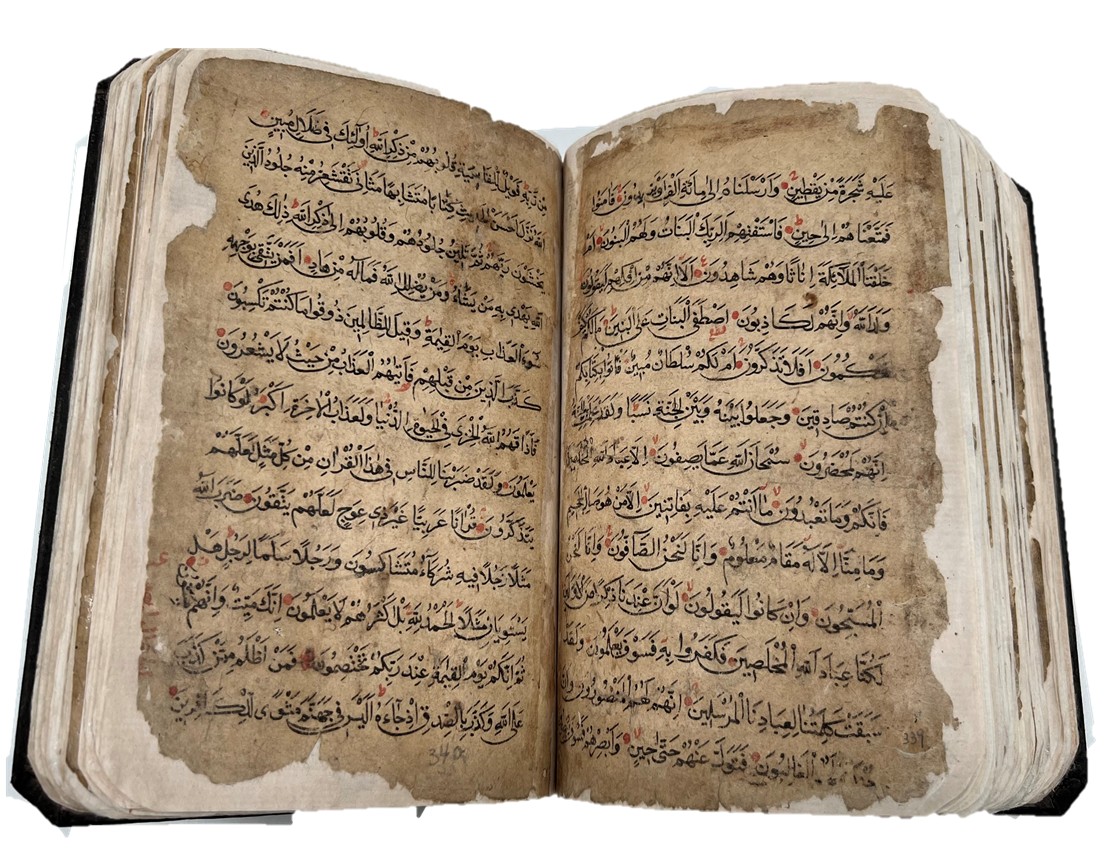 عليه شجرة من يقطين وارسلناه الى مائة الف او يزيدون فامنوا
فمتعناهم الى حين فاستفتهم الربك البنات ولهم البنون ام
خلقنا الملائكة اناثا وهم شاهدون الا انهم من افكهم ليقولون
ولد الله وانهم لكاذبون اصطفى البنات على البنين مالكم
تحكمون افلا تذكرون ام لكم سلطان مبين فاتوا بكتابكم
ان كنتم صادقين وجعلوا بينه وبين الجنة نسبا ولقد علمت الجنة
انهم لمحضرون سبحان الله عما يصفون الا عباد الله المخلصين
فانكم وما تعبدون ما انتم عليه بفاتنين الا من هو صال الجحيم
وما منا الا له مقام معلوم وانا لنحن الصافون وانا لنحن
المسبحون وان كانوا ليقولون لو ان عندنا ذكرا من الاولين
لكنا عباد الله المخلصين فكفروا به فسوف يعلمون ولقد
سبقت كلمتنا لعبادنا المرسلين انهم لهم المنصورون وان
الغالبون فتول عنهم حتى حين وابصرهم فسوف
339
من ربه فويل للقاسية قلوبهم من ذكر الله اولئك في ضلال مبين
الله نزل احسن الحديث كتابا متشابها مثاني تقشعر منه جلود الذين
يخشون ربهم ثم تلين جلودهم وقلوبهم الى ذكر الله ذلك هدى
الله يهدي به من يشاء ومن يضلل الله فما له من هاد افمن يتقي بوجهه
سوء العذاب يوم القيمة وقيل للظالمين ذوقوا ما كنتم تكسبون
كذب الذين من قبلهم فاتيهم العذاب من حيث لا يشعرون
فاذاقهم الله الخزي في الحيوة الدنيا ولعذاب الاخرة اكبر لو كانوا
يعلمون ولقد ضربنا للناس في هذا القران من كل مثل لعلهم
يتذكرون قرانا عربيا غير ذي عوج لعلهم يتقون ضرب الله
مثلا رجلا فيه شركاء متشاكسون ورجلا سلما لرجل هل
يستويان مثلا الحمد لله بل اكثرهم لا يعلمون انك ميت وانهم ميتون
ثم انكم يوم القيمة عند ربكم تختصمون فمن اظلم ممن كذب
على الله وكذب بالصدق اذ جاءه اليس في جهنم مثوى للكافرين
340